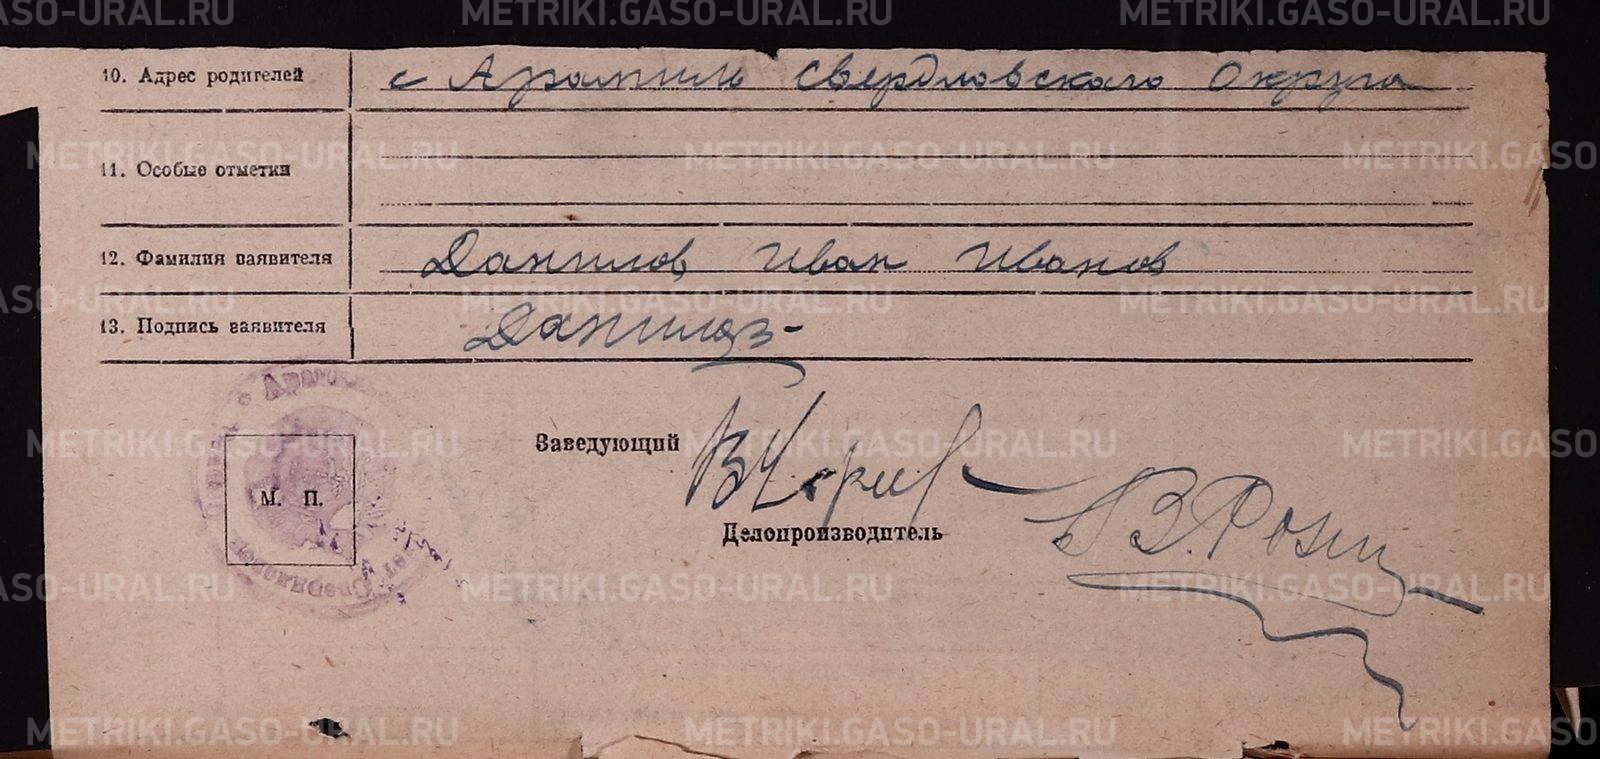 METRIKI.GASO-URAL.RU METRIKI.GASO-URAL.RU
10. Адрес родителей с Арамиль Свердловского Округа
11. Особые отметки
12. Фамилия заявителя Данилов Иван Иванов
13. Подпись заявителя Данилов
Заведующий
М. П.
Делопроизводитель